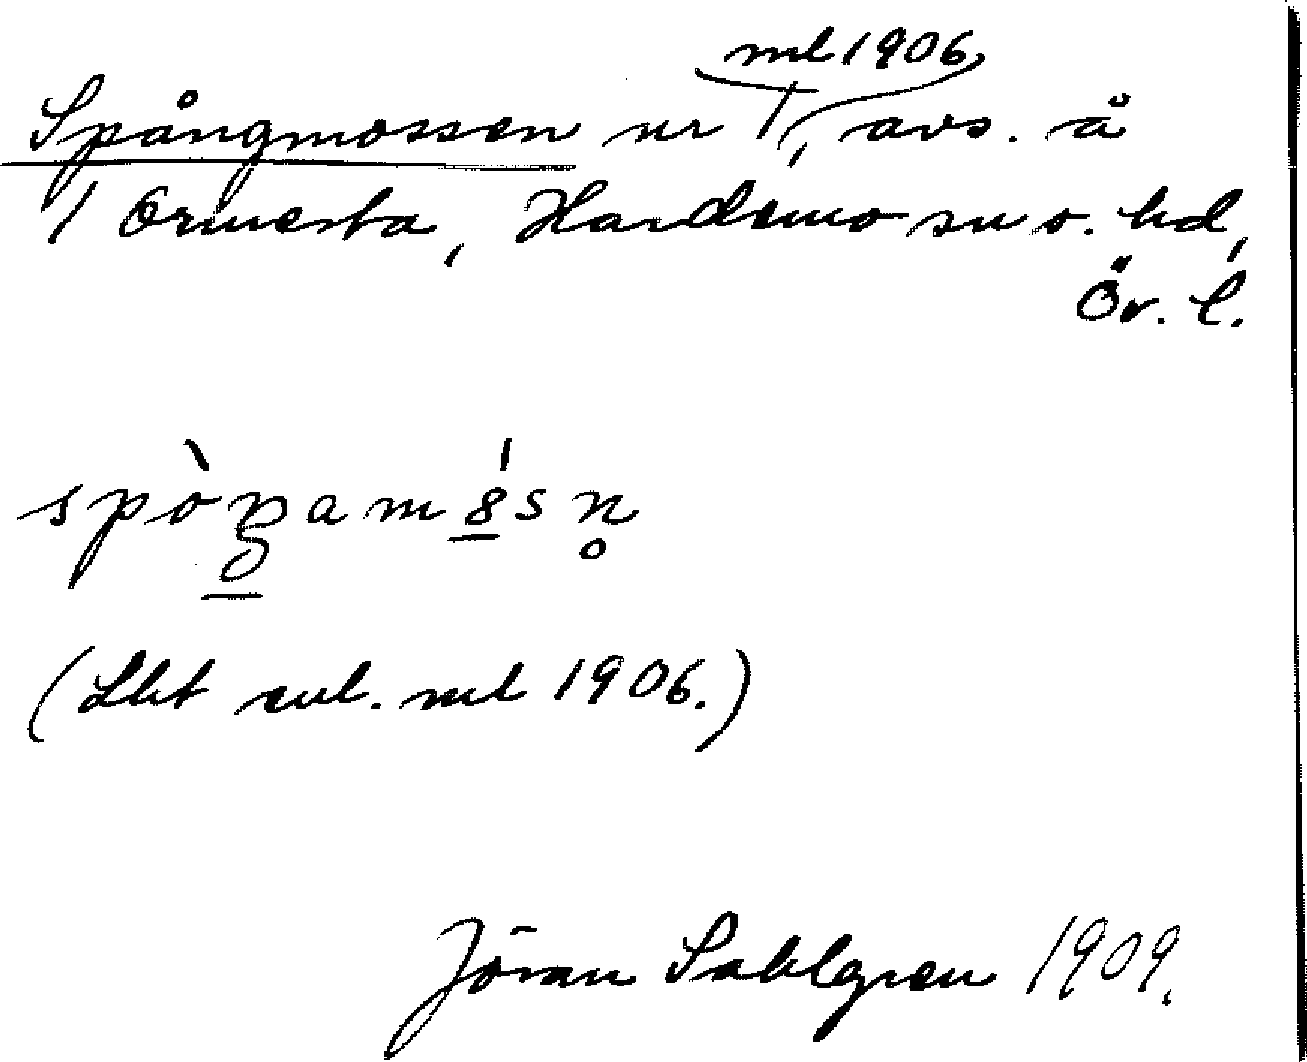 Spångmossen nr 1 ml 1906, avs. å
1 Ormesta, Hardemo sn o. hd,
Ör. l.
spòŋamósn̥
(Lbt enl. ml 1906.)
Jöran Sahlgren 1909.